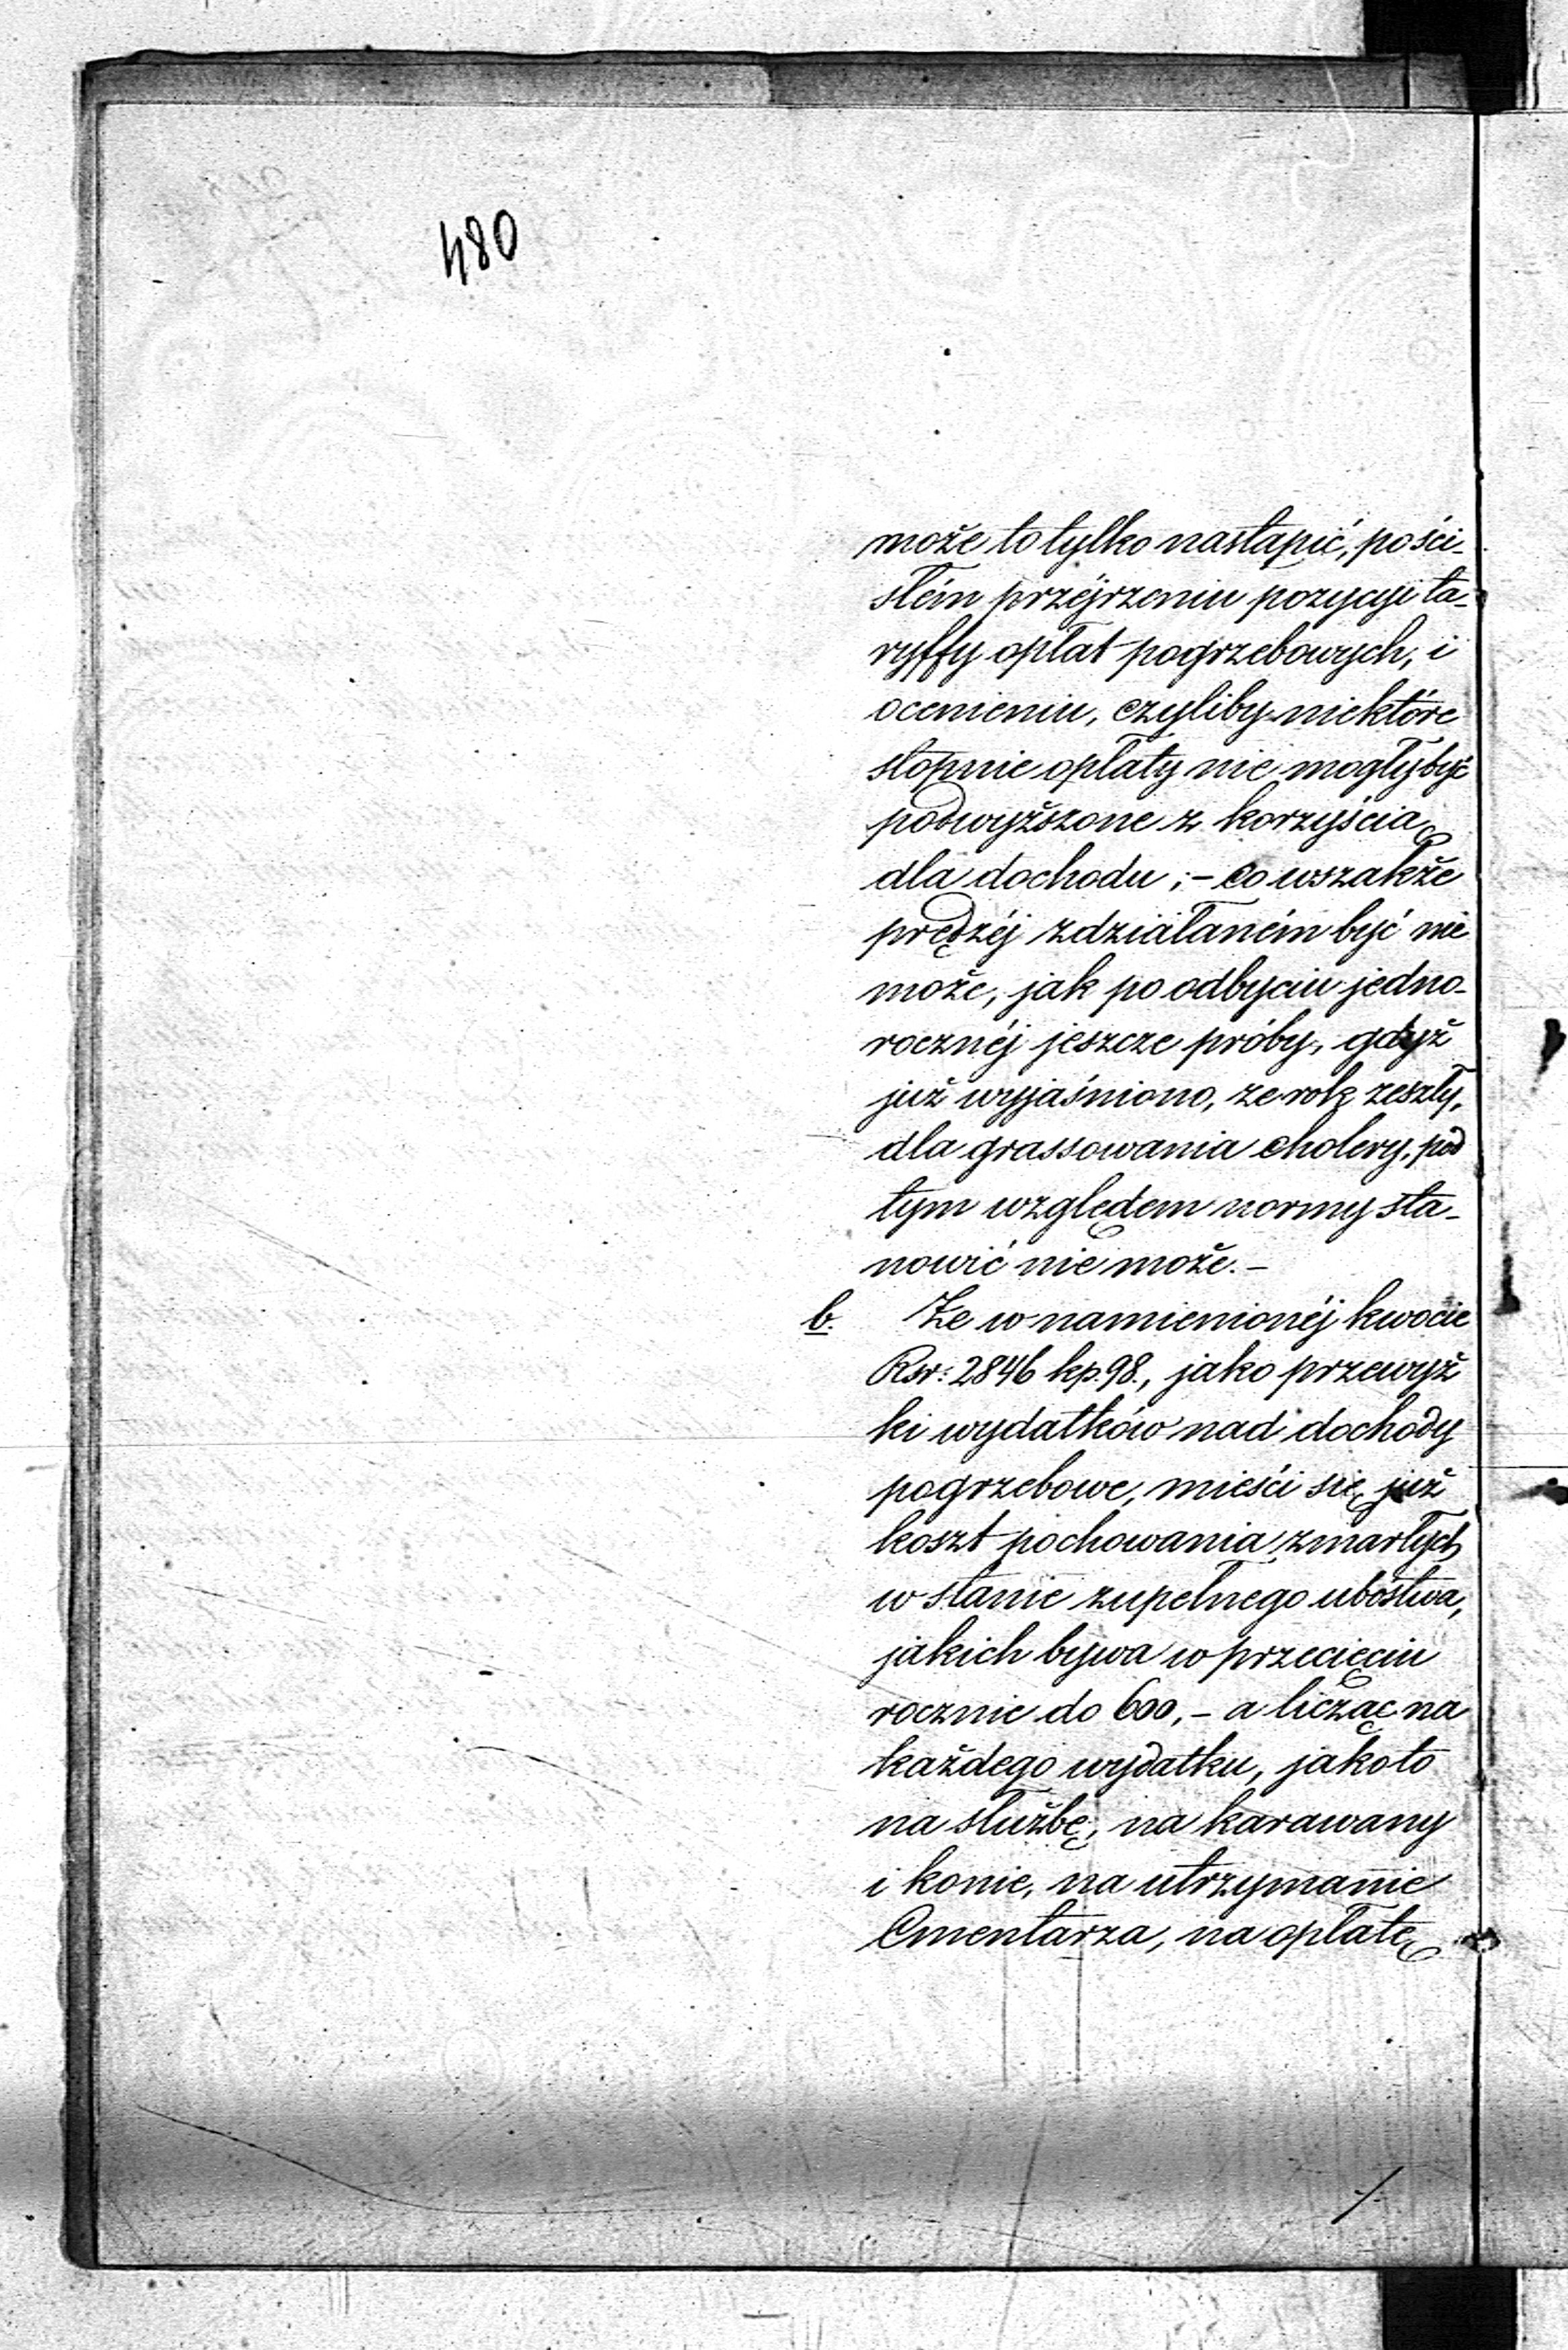 480
może to tylko nastąpić, po ści-
słém przéjrzeniu pozycyi ta-
ryffy opłat pogrzebowych, i
ocenieniu, czyliby niektóre
stopnie opłaty nie mogły być
podwyższone z korzyścią
dla dochodu; - co wszakże
prędzéj zdziałaném być nie
może, jak po odbyciu jedno-
rocznéj jeszcze próby, gdyż
już wyjaśniono, że rok zeszły,
dla grassowania cholery, pod
tym względem normy sta-
nowić nie może. -
b. Że w namienionéj kwocie
Rsr: 2846 kp. 98., jako przewyż
ki wydatków nad dochody
pogrzebowe, mieści się już
koszt pochowania zmarłych
w stanie zupełnego ubóstwa,
jakich bywa w przecięciu
rocznie do 600, - a licząc na
każdego wydatku, jako to
na służbę, na karawany
i konie, na utrzymanie
Cmentarza, na opłatę